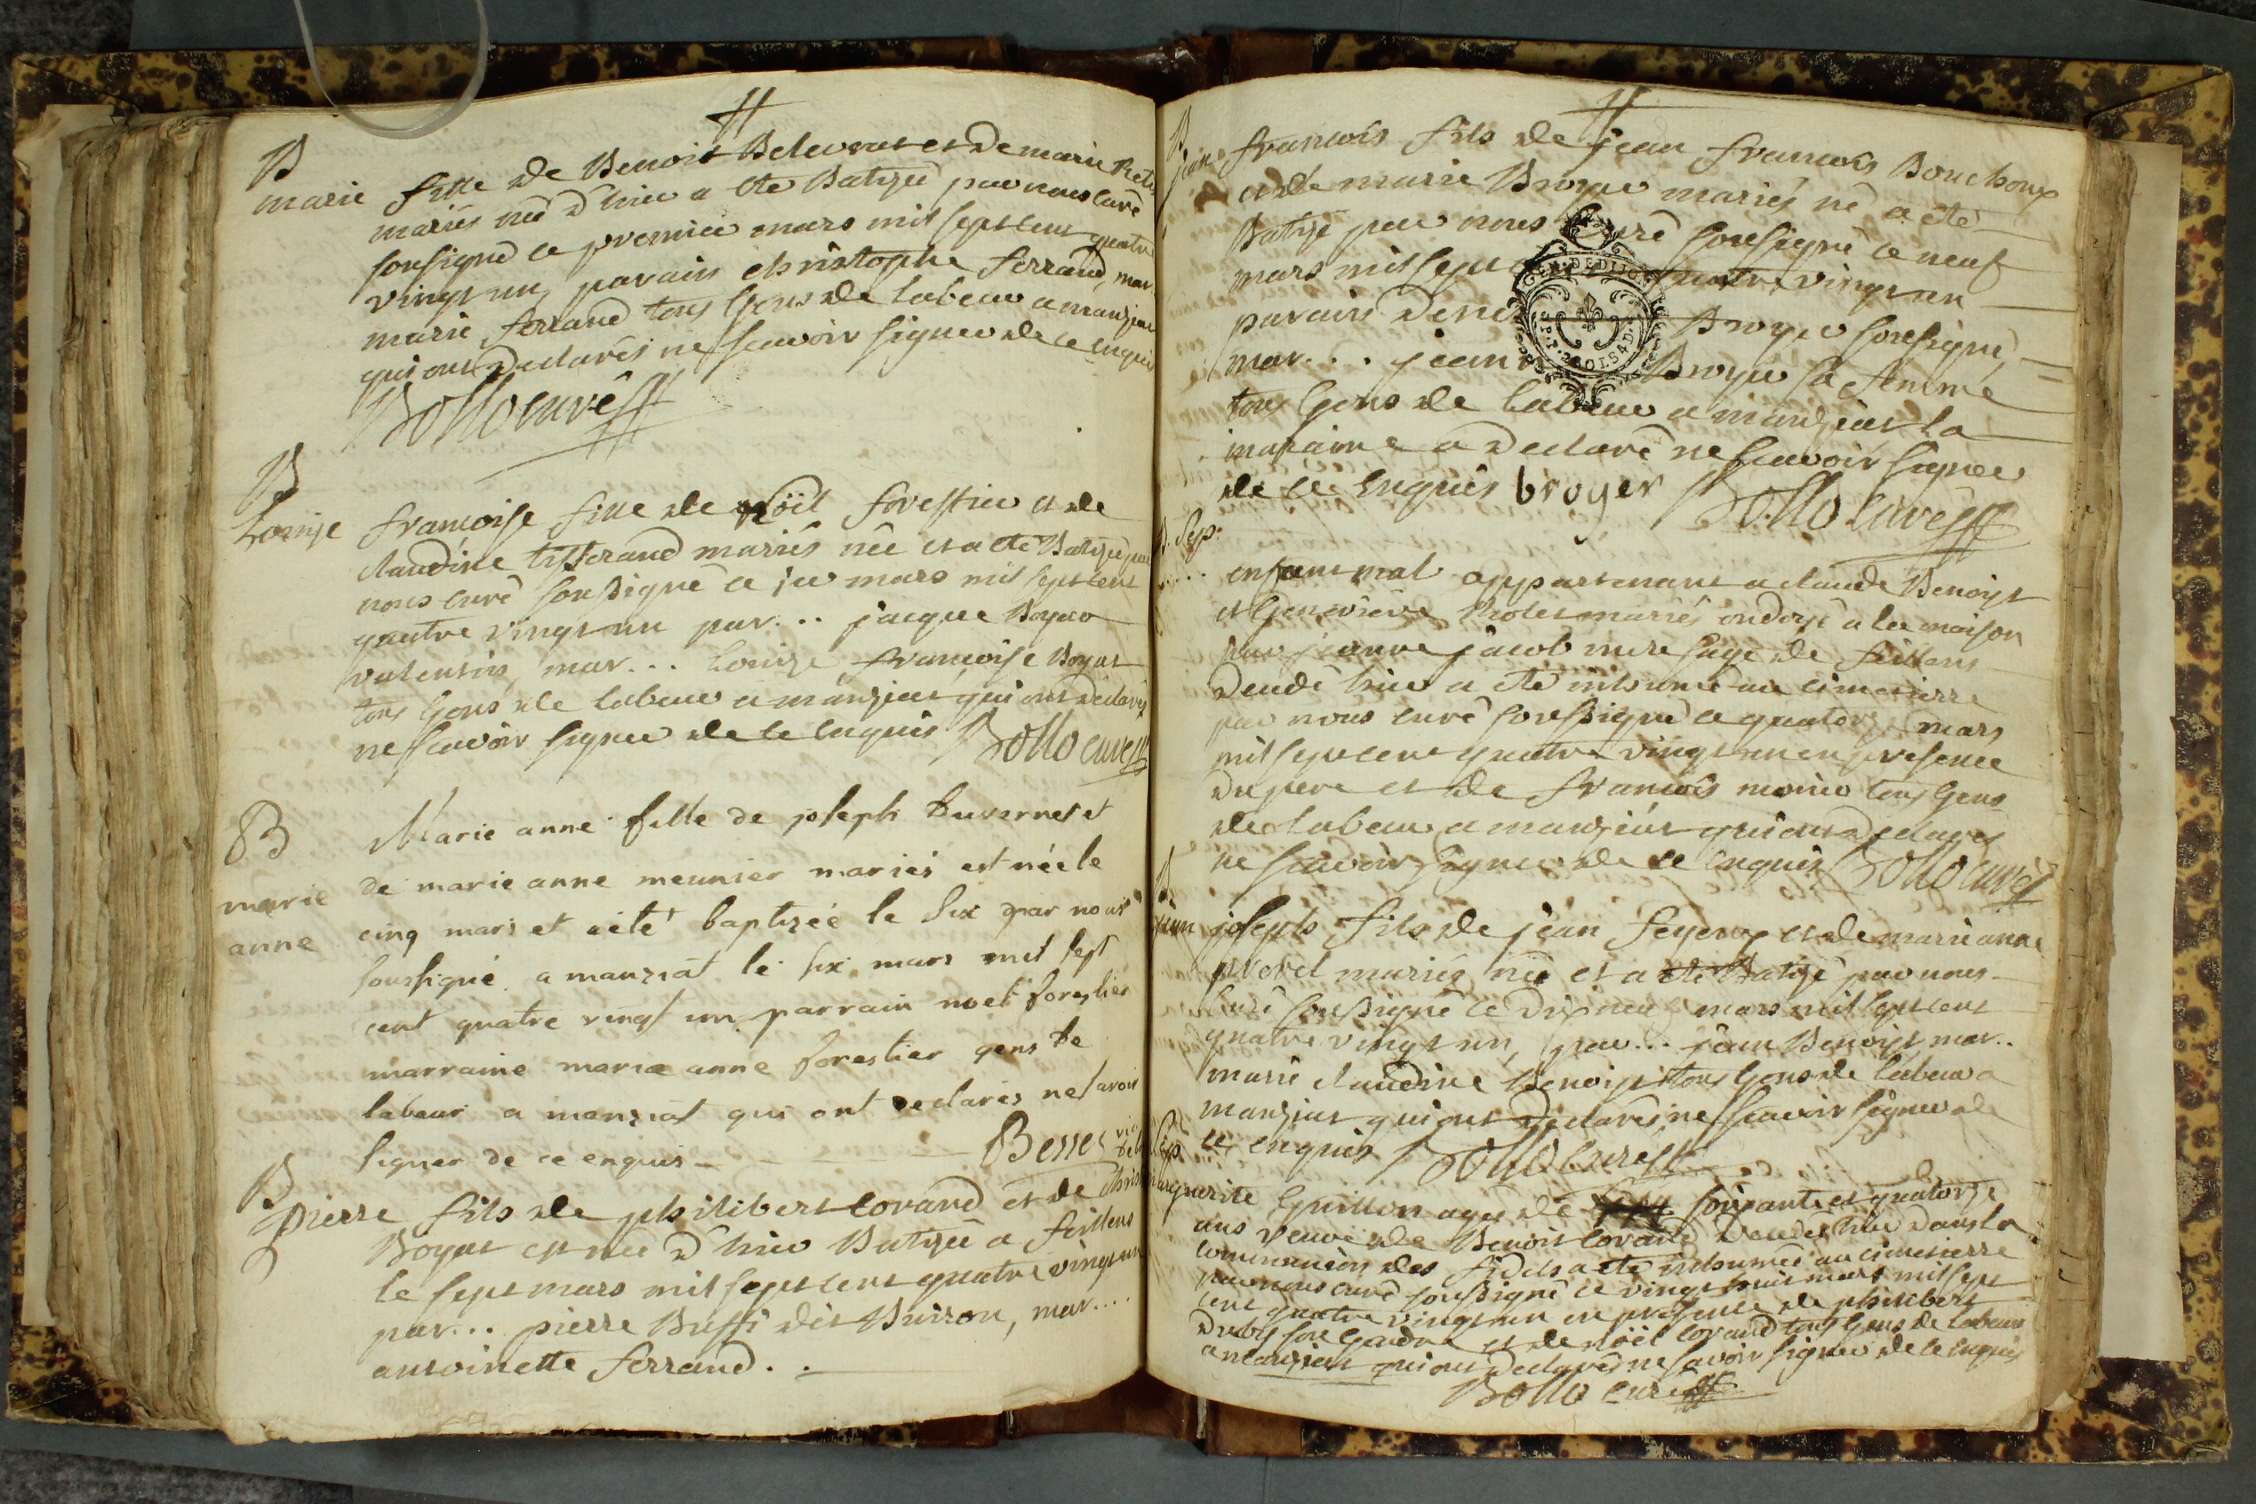 B
marie fille de Benoit Belevrat et de marie
mariés née d'hier a été Batizée par nous curé
sousigné ce premier mars mil sept cent quatre
vingt un, parain christophe ferrand, mar
marie ferrand tous Gens de labeur a manziat
qui ont declarés ne sçavoir signer de ce enquis
Bollo curé
B
Louise françoise fille de Noël forestier et de
claudine tisserand mariés née et a été Batizée par
nous curé sousigné ce six mars mil sept cent
quatre vingt un par... jacque Boyat
valentin, mar... Louize françoise Boyat
tous Gens de labeur a manziat qui ont declarés
ne sçavoir signer de ce enquis Bollo curé
B
marie anne
Marie anne fille de joseph Duvernet et
de marie anne meunier mariés est née le
cinq mars et a été baptizée le six par nous
soussigné a manziat le six mars mil sept
cent quatre vingt un parrain noel forestier
marraine marie anne forestier gens de
labeur a manziat qui ont declarés ne savoir
signer de ce enquis Besses
B
pierre fils de philibert lorand et de
Boyat est né d'hier Batizé a feillens
le sept mars mil sept cent quatre vingt un
par... pierre Buffi dit Buiron, mar....
antoinette ferrand.
B
jean françois fils de jean françois Bouchoux
et de marie Broyer mariés né a été
Batizé par nous Curé sousigné ce neuf
mars mil sept quatre vingt un
parain Broyer sousigné
mar... jeanne Broyer sa femme
tous Gens de labeur a manziat la
maraine a declaré ne sçavoir signer
de ce enquis broyer Bollo curé
Sep.
enfant mal appartenant a claude Benoist
et Genevieve mariés ondoyé a la maison
par jeanne jacob mere sage de feillens
decedé hier a été inhumé au cimetierre
par nous curé soussigné ce quatorze mars
mil sept cent quatre vingt un en presence
du pere et de francois monin tous Gens
de labeur a manziat qui ont declarés
ne sçavoir signer de ce enquis Bollo curé
B
jean joseph fils de jean feyeux et de marie anne
prevel mariés né et a été Batizé par nous
Curé sousigné ce dix neuf mars mil sept cent
quatre vingt un, par... jean Benoist mar..
marie claudine Benoist tous Gens de labeur a
manziat qui ont declarés ne sçavoir signer de
ce enquis Bollo Curé
Sep
marguerite Guillon agée de soixante et quatorze
ans veuve de Benoit lorand decedée hier dans la
communion des fidels a été inhumée au cimetierre
par nous curé sousigné ce vingt huit mars mil sept
cent quatre vingt un en presence de philibert
son Gendre et de noël lorand tous Gens de labeur
a manziat qui ont declarés ne savoir signer de ce enquis
Bollo Curé
GEN. DE DIJON